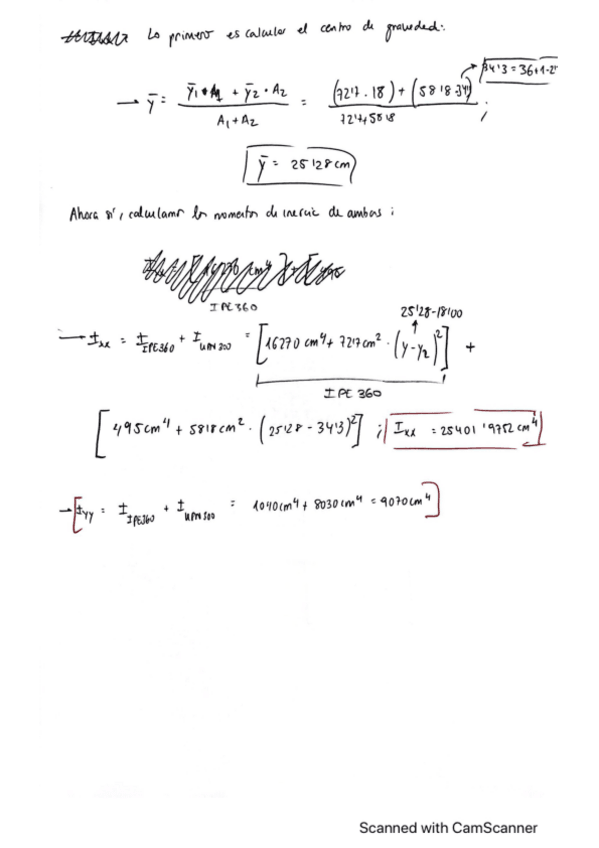 Lo primero es calcular el centro de gravedad:
34'3 = 36+1-2'
→ ȳ = (ȳ₁ · A₁ + ȳ₂ · A₂) / (A₁ + A₂) = ((72'7 · 18) + (58'8 · 34')) / (72'7+58'8) ;
ȳ = 25'28 cm
Ahora sí, calculamos los momentos de inercia de ambos ;
IPE 360
25'28-18'00
→ Ixx = I IPE360 + I UPN300 = [16270 cm⁴ + 72'7 cm² · (y-y₂)²] +
IPE 360
[495 cm⁴ + 58'8 cm² · (25'28 - 34'3)²] ; Ixx = 25401'9752 cm⁴
→ Iyy = I IPE360 + I UPN300 = 1040 cm⁴ + 8030 cm⁴ = 9070 cm⁴
Scanned with CamScanner